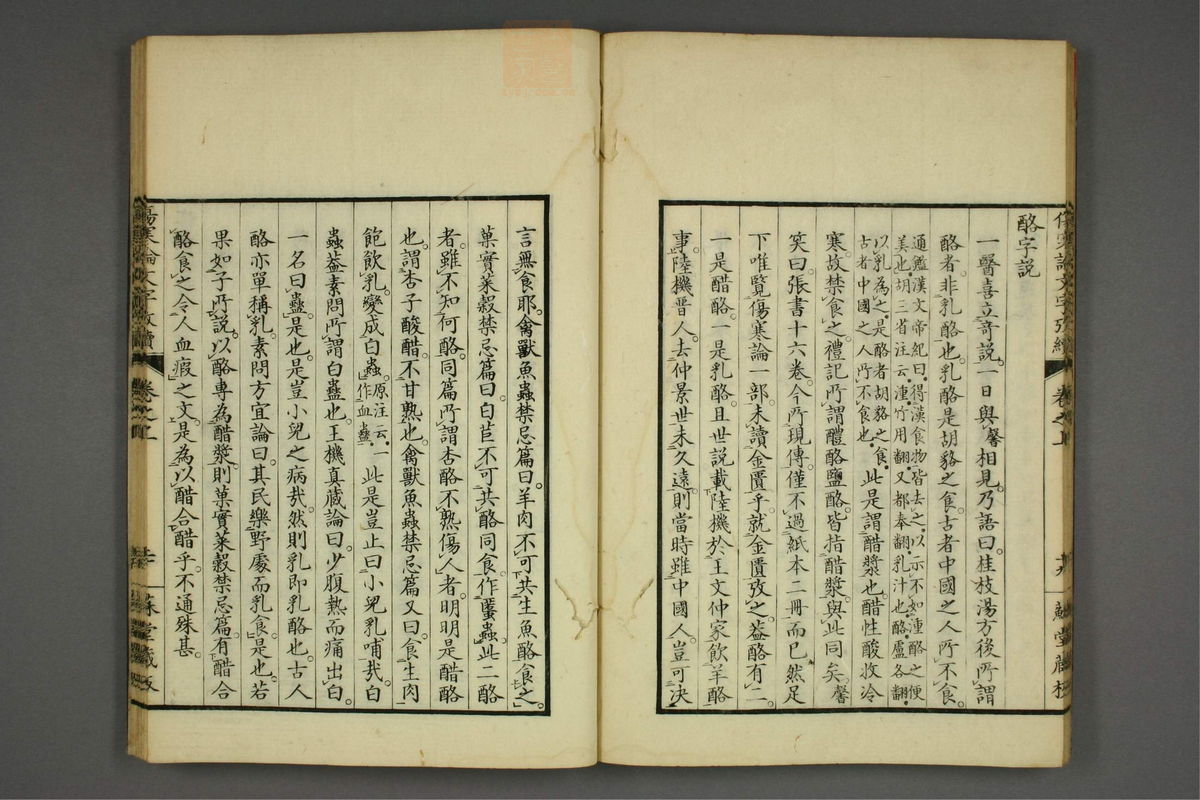 酪字説
一醫喜立奇説一日與馨相見乃語曰桂枝湯方後所謂
酪者非乳酪也乳酪是胡貉之食古者中國之人所不食
通鑑漢文帝紀曰得漢食物皆去之以示不如湩酪之便
美也胡三省注云湩竹用翻又都奉翻乳汁也酪盧各翻
以乳為之是酪者胡貉之食
古者中國之人所不食也
此是謂醋漿也醋性酸收冷
寒故禁食之禮記所謂醴酪鹽酪皆指醋漿與此同矣馨
笑曰張書十六卷今所現傳僅不過紙本二冊而已然足
下唯覽傷寒論一部未讀金匱乎就金匱攷之葢酪有二
一是醋酪一是乳酪且世説載陸機於王文仲家飲羊酪
事陸機晋人去仲景世未久遠則當時雖中國人豈可决
言無食耶禽獸魚蟲禁忌篇曰羊肉不可共生魚酪食之
菓實菜穀禁忌篇曰白苣不可共酪同食作䘌蟲此二酪
者雖不知何酪同篇所謂杏酪不熟傷人者明明是醋酪
也謂杏子酸醋不甘熟也禽獸魚蟲禁忌篇又曰食生肉
飽飲乳變成白蟲
原注云一
作血蠱
此是豈止曰小兒乳哺哉白
蟲葢素問所謂白蠱也王機真蔵論曰少腹熱而痛出白
一名曰蠱是也是豈小兒之病哉然則乳即乳酪也古人
酪亦單稱乳素問方宜論曰其民樂野處而乳食是也若
果如子所説以酪專為醋漿則菓實菜穀禁忌篇有醋合
酪食之令人血瘕之文是為以醋合醋乎不通殊甚